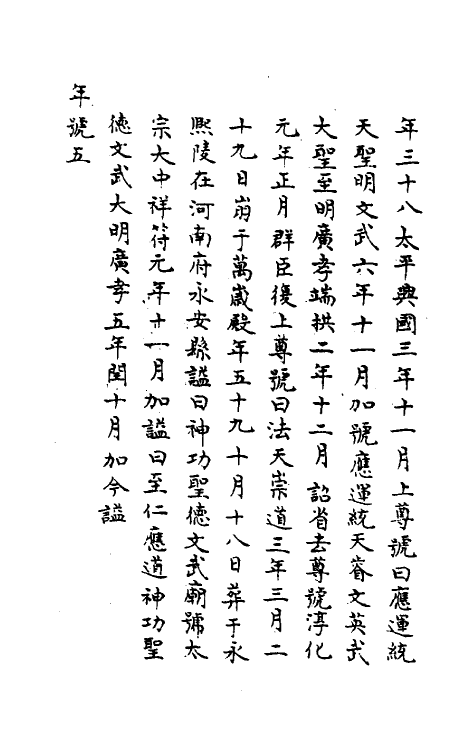 年三十八太平興國三年十一月上尊號曰應運統
天聖明文武六年十一月加號應運統天睿文英武
大聖至明廣孝端拱二年十二月詔省去尊號淳化
元年正月群臣復上尊號曰法天崇道三年三月二
十九日崩于萬歲殿年五十九十月十八日葬于永
熙陵在河南府永安縣諡曰神功聖德文武廟號太
宗大中祥符元年十一月加諡曰至仁應道神功聖
德文武大明廣孝五年閏十月加今諡
年號五